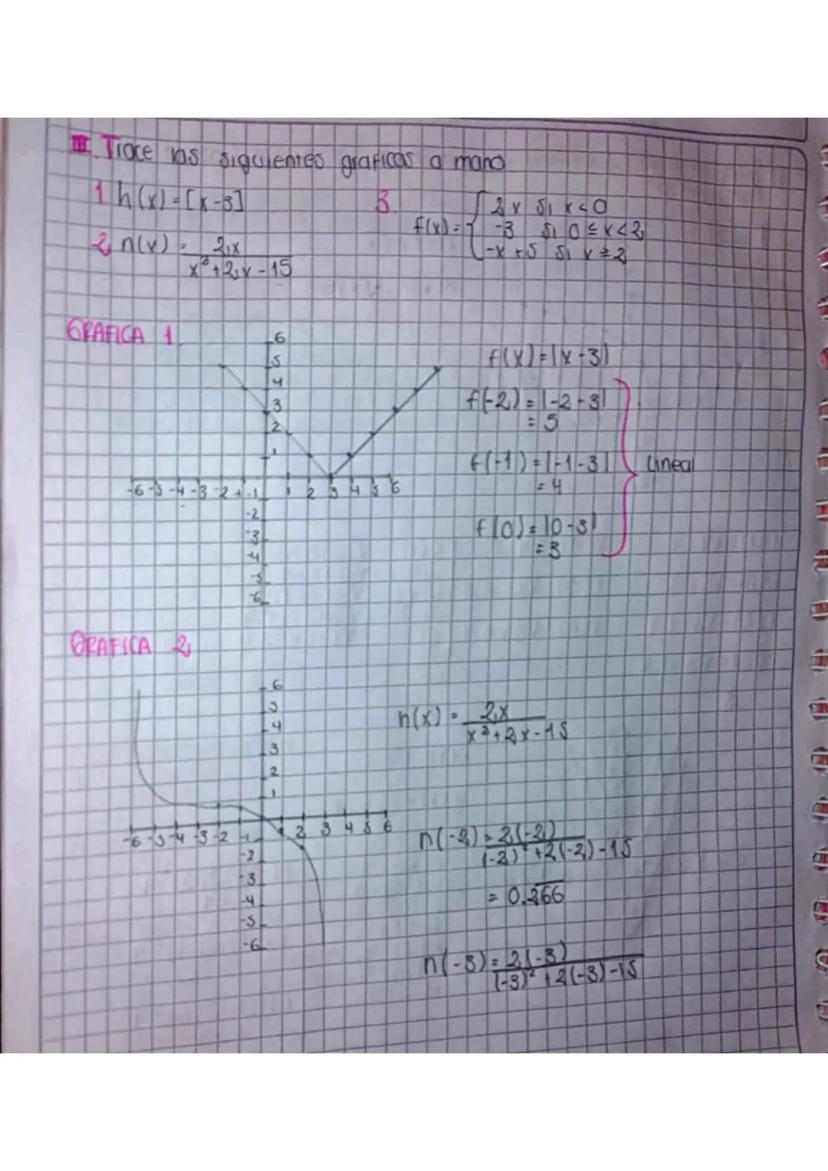 III Trace las siguientes graficas a mano
1 h(x) = [x-3]
2 n(x) = 2x / x²+2x-15
3 f(x) = { 2x si x<0
-3 si 0≤x<2
-x+5 si x≥2
GRAFICA 1
6
5
4
3
2
1
-6 -5 -4 -3 -2 -1 1 2 3 4 5 6
-2
-3
-4
-5
-6
f(x) = |x-3|
f(-2) = |-2-3|
= 5
f(-1) = |-1-3|
= 4
f(0) = |0-3|
= 3
Lineal
GRAFICA 2
6
5
4
3
2
1
-6 -5 -4 -3 -2 -1 2 3 4 5 6
-2
-3
-4
-5
-6
n(x) = 2x / x²+2x-15
n(-2) = 2(-2) / (-2)²+2(-2)-15
= 0.266
n(-3) = 2(-3) / (-3)²+2(-3)-15